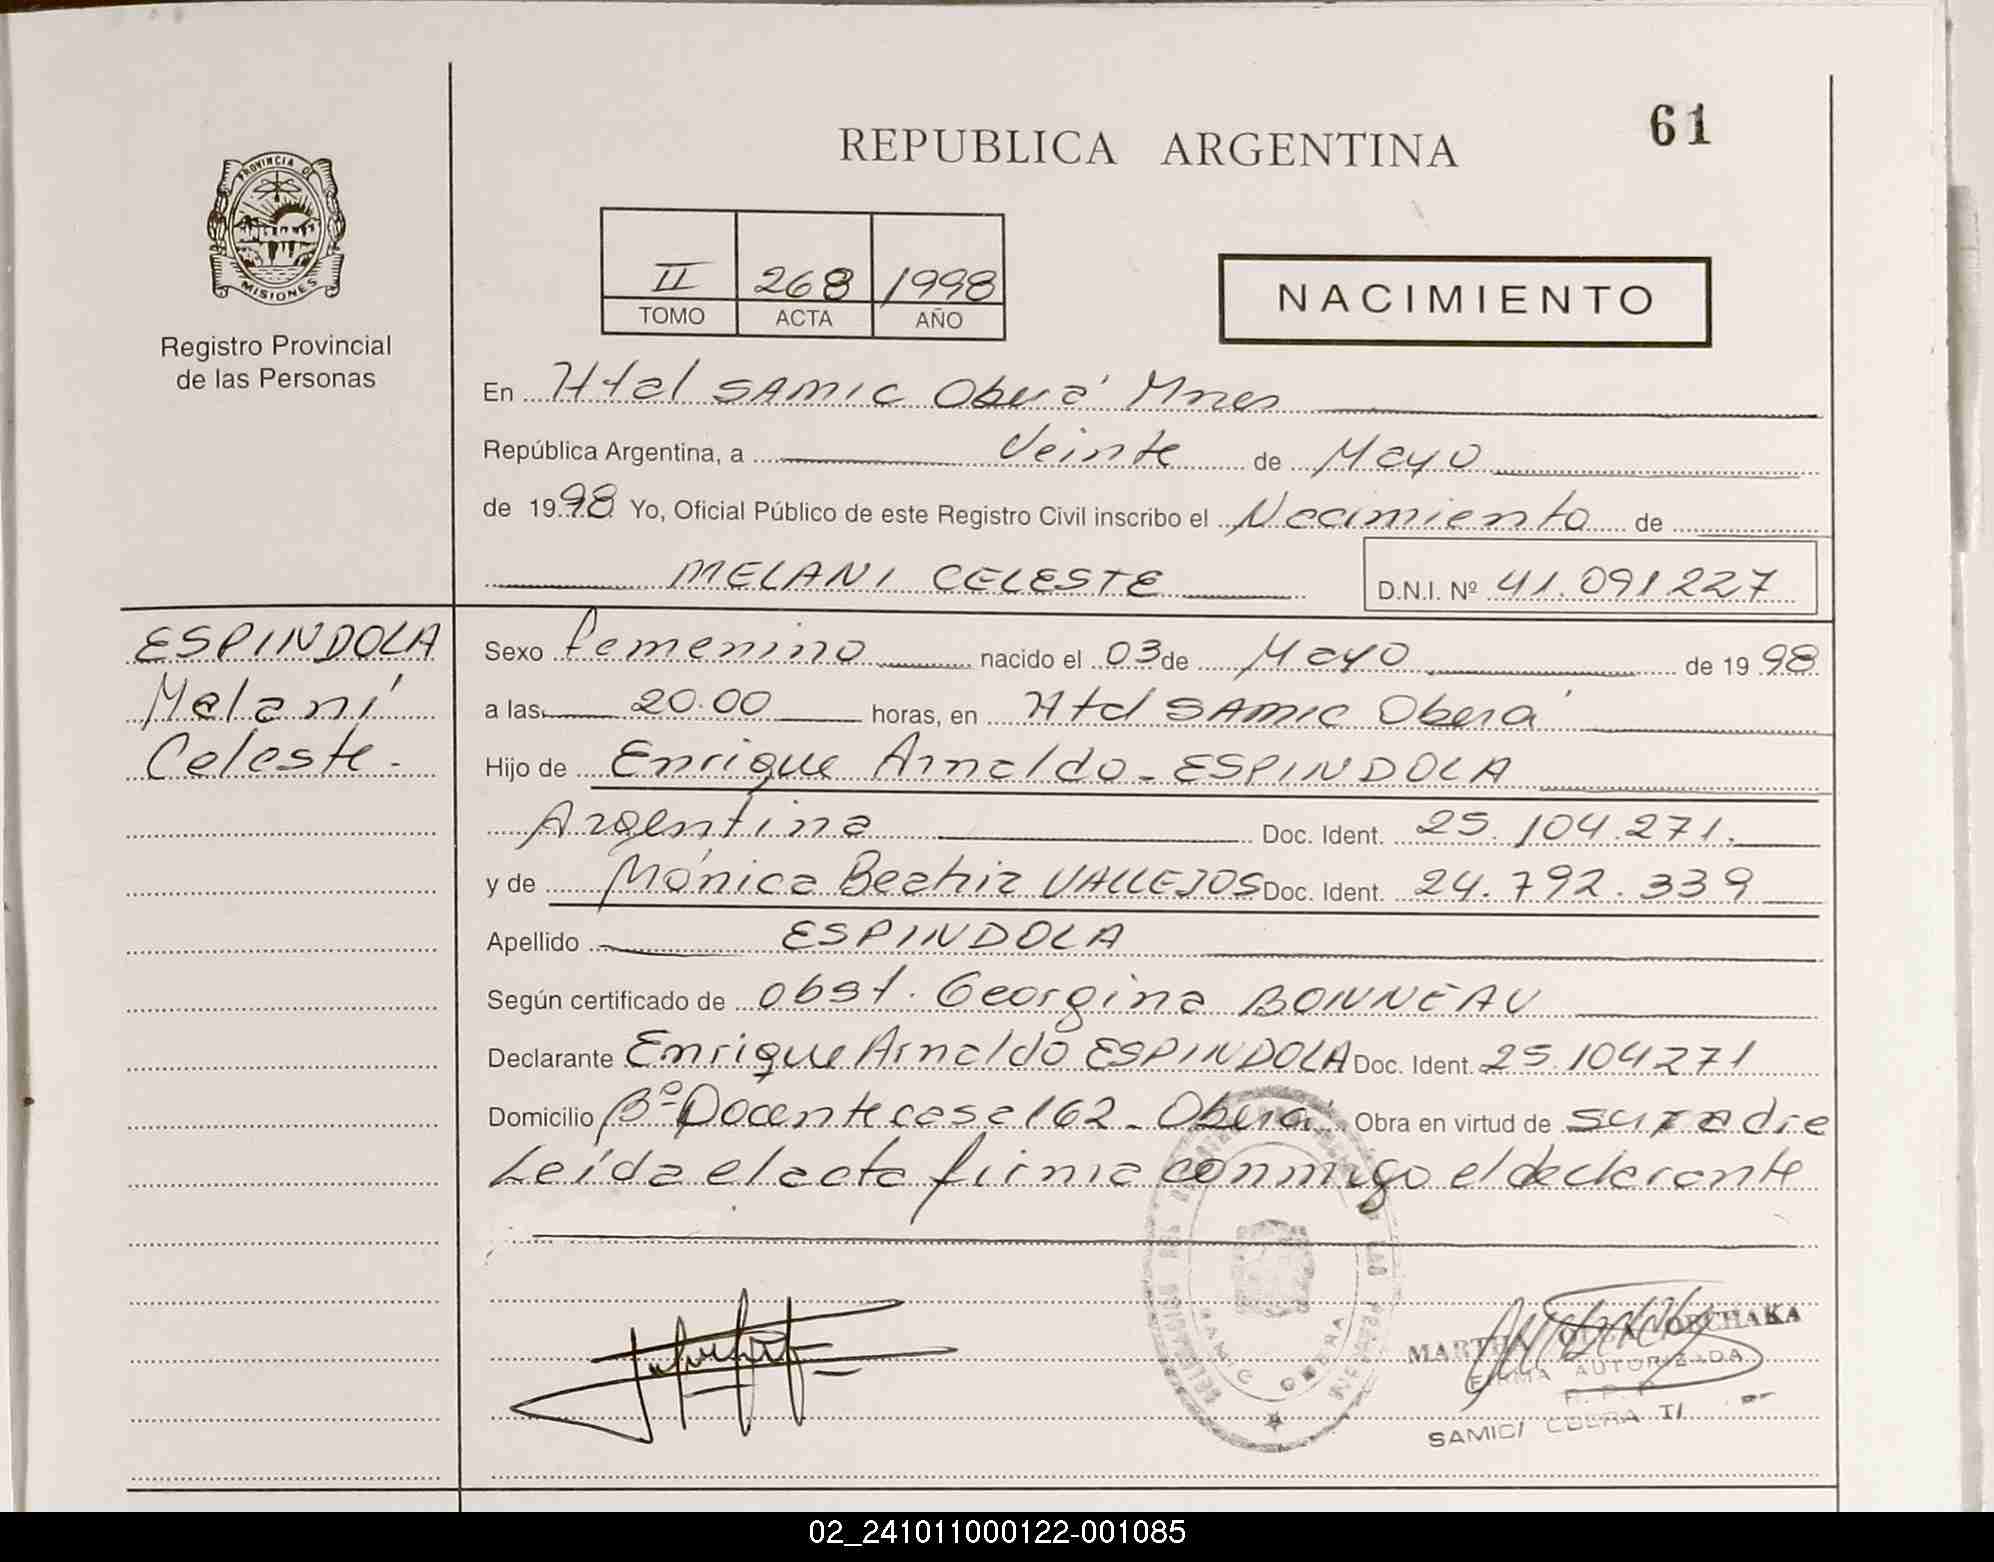 61
REPUBLICA ARGENTINA
PROVINCIA DE
MISIONES
Registro Provincial
de las Personas
II 268 1998
TOMO ACTA AÑO
NACIMIENTO
En Htal SAMIC Oberá Mnes
República Argentina, a Veinte de Mayo
de 1998 Yo, Oficial Público de este Registro Civil inscribo el Nacimiento de
MELANI CELESTE D.N.I. Nº 41.091227
ESPINDOLA
Melaní
Celeste.-
Sexo femenino nacido el 03 de Mayo de 1998
a las 20.00 horas, en Htal SAMIC Oberá
Hijo de Enrique Arnaldo - ESPINDOLA
Argentina Doc. Ident. 25.104.271.
y de Mónica Beatriz VALLEJOS Doc. Ident. 24.792.339
Apellido ESPINDOLA
Según certificado de obst. Georgina BONNEAU
Declarante Enrique Arnaldo ESPINDOLA Doc. Ident. 25.104271
Domicilio Bº Docente casa 162 - Oberá Obra en virtud de ser padre
Leída el acta firma conmigo el declarante
SAMIC OBERA
MARTHA OLGA
FIRMA AUTORIZADA
R. P. P.
SAMIC/ OBERA
02_241011000122-001085